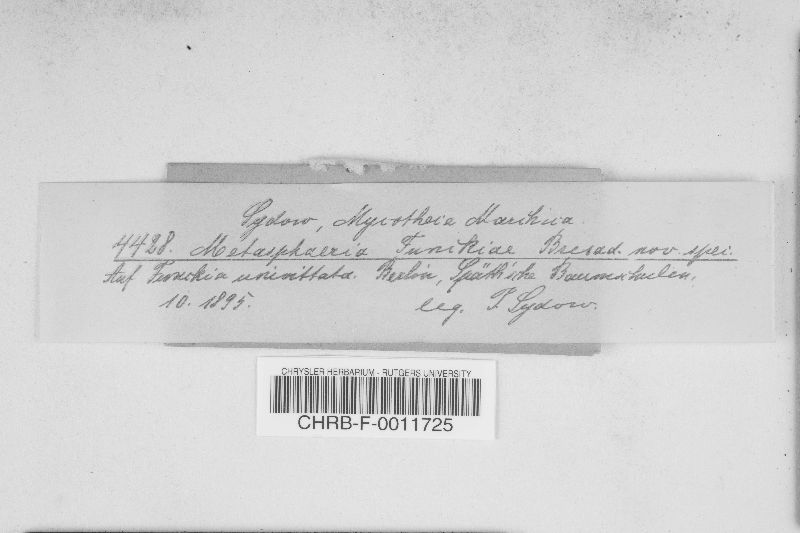 Sydow, Mycotheca Marchica.
4428. Metasphaeria Funkiae Bresad. nov. spei.
Auf Funckia univittata. Berlin, Späth'sche Baumschulen,
10. 1895. leg. P. Sydow.
CHRYSLER HERBARIUM - RUTGERS UNIVERSITY
CHRB-F-0011725